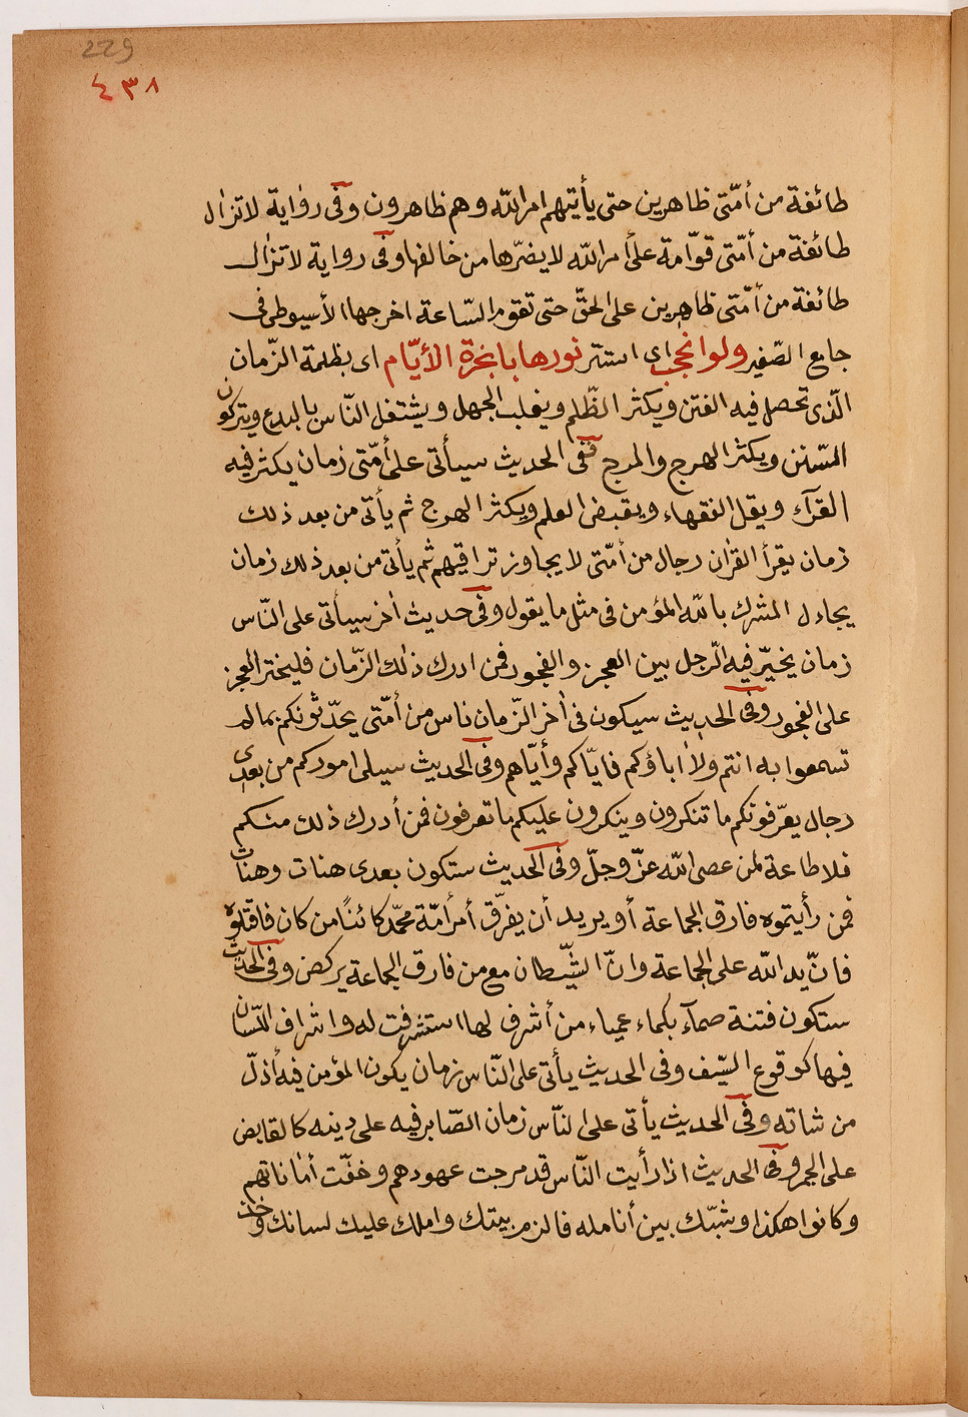 229
٤٣٨
طائفة من أمّتى ظاهرين حتى يأتيهم امر الله وهم ظاهرون وفى رواية لا تزال
طائفة من أمّتى قوّامة على أمر الله لا يضرّها من خالفها وفى رواية لا تزال
طائفة من أمّتى ظاهرين على الحقّ حتى تقوم السّاعة اخرجها الأسيوطى فى
جامع الصّغير ولو انحجب اى استتر نورها بابخرة الأيّام اى بظلمة الزّمان
الّذى تحصل فيه الفتن ويكثر الظّلم ويغلب الجهل ويشتغل النّاس بالبدع ويتركون
السّنن ويكثر الهرج والمرج ففى الحديث سيأتى على أمّتى زمان يكثر فيه
القرآء ويقل الفقهاء ويقبض العلم ويكثر الهرج ثم يأتى من بعد ذلك
زمان يقرأ القران رجال من أمّتى لا يجاوز تراقيهم ثم يأتى من بعد ذلك زمان
يجادل المشرك بالله المؤمن فى مثل ما يقول وفى حديث أخر سيأتى على النّاس
زمان يخيّر فيه الرّجل بين العجز والفجور فمن ادرك ذلك الزّمان فليختر العجز
على الفجور وفى الحديث سيكون فى أخر الزّمان ناس من أمّتى يحدّثونكم بما لم
تسمعوا به انتم ولا اباؤكم فايّاكم وأيّاهم وفى الحديث سيلى اموركم من بعدى
رجال يعرّفونكم ما تنكرون وينكرون عليكم ما تعرفون فمن أدرك ذلك منكم
فلا طاعة لمن عصى الله عزّ وجلّ وفى الحديث ستكون بعدى هنات وهنات
فمن رأيتموه فارق الجماعة أو يريد أن يفرّق أمر أمّة محمّد كائنًا من كان فاقتلوه
فانّ يد الله على الجماعة وانّ الشّيطان مع من فارق الجماعة يركض وفى الحديث
ستكون فتنة صمآء بكماء عمياء من أشرف لها استشرفت له واشراف اللّسان
فيها كوقوع السّيف وفى الحديث يأتى على النّاس زمان يكون المؤمن فيه أذلّ
من شاته وفى الحديث يأتى على النّاس زمان الصّابر فيه على دينه كالقابض
على الجمر وفى الحديث اذا رأيت النّاس قد مرجت عهودهم وخفّت أماناتهم
وكانوا هكذا وشبّك بين أنامله فالزم بيتك واملك عليك لسانك وخذ